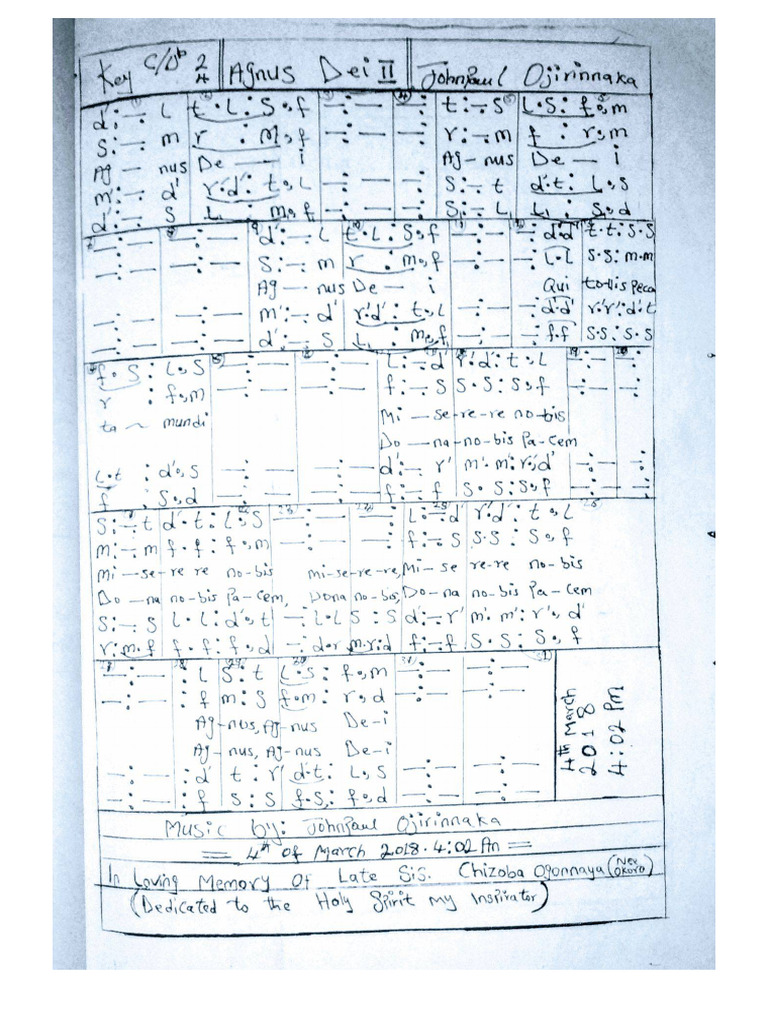 Key C/Dᵇ 2/4 Agnus Dei II Johnpaul Ojirinnaka
d':– L t.L:S.f –:– –:– t:–.S L.S:f.,m
S:– m r :m.,f –:– –:– r:–.m f :r.,m
Ag – nus De — i Ag – nus De — i
m':– d' r'.d':t.,L –:– –:– S:– t d'.t:L.,S
d':– S L₁ :m.,f –:– –:– S:– L L₁:S.,d
–:– –:– d':– L t.L:S.,f –:– –:d'.d' t.t:S.S
–:– –:– S:– m r :m.,f –:– –:L.L S.S:m.m
Ag – nus De – i Qui tollis peca
–:– –:– m':– d' r'.d':t.,L –:– –:d'.d' r'.r':d'.t
–:– –:– d':– S L₁ :m.,f –:– –:f.f S.S:S.S
f.S:L.S –:– –:– L:–.d' r'.d':t.L –:– –:–
r :f.,m –:– –:– f:–.S S.S:S.,f –:– –:–
ta ~ mundi Mi – se-re-re no-bis
Do – na-no-bis Pa-cem
L.t :d'.,S –:– –:– d':–.r' m'.m':r'.,d' –:– –:–
f :S.,d –:– –:– f:–.f S.S:S.,f –:– –:–
S:–.t d'.t:L.,S –:– –:– L:–.d' r'.d':t.,L
m:–.m f.f:f.,m –:– –:– f:–.S S.S:S.,f
Mi – se-re re no-bis mi-se-re-re, Mi – se re-re no-bis
Do – na no-bis Pa-cem, Dona no-bis, Do – na no-bis Pa-cem
S:–.S L.L:d'.,t –:L.L S:S d':–.r' m'.m':r'.,d'
r:m.f f.f:f.,d –:d.r m.r:d f:–.f S.S:S.,f
–:– :L S:t L.S:f.,m –:– –:–
–:– :f m:S f.m:r.,d –:– –:–
Ag-nus, Ag-nus De-i
Ag-nus, Ag-nus De-i
–:– :d' t:r' d'.t:L.,S –:– –:–
–:– :f S:S f.S:f.,d –:– –:–
4th March
2018
4:02 PM
Music by: Johnpaul Ojirinnaka
= 4th of March 2018. 4:02 Pm =
In Loving Memory Of Late Sis. Chizoba Ogonnaya (Nee Okoro)
(Dedicated to the Holy Spirit my Inspirator)